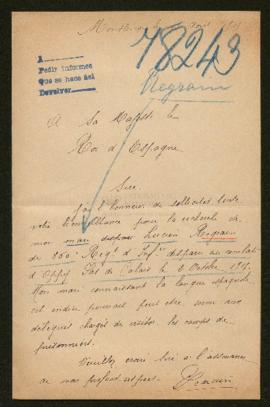 78243
A
Pedir informes
Que se hace del
Devolver
Regrain
A Sa Majesté le
Roi d'Espagne
Sire
J'ai l'honneur de solliciter toute
votre bienveillance pour la recherche de
mon mari disparu Lucien
du 360e Régt d'Infrie disparu au combat
d'Oppy Pas de Calais le 2 Octobre
Mon mari connaissant la langue espagnole
est interné pourrait peut être
délégués chargés de visiter les camps de
prisonniers.
Veuillez croire Sire à l'assurance
de mon profond respect.